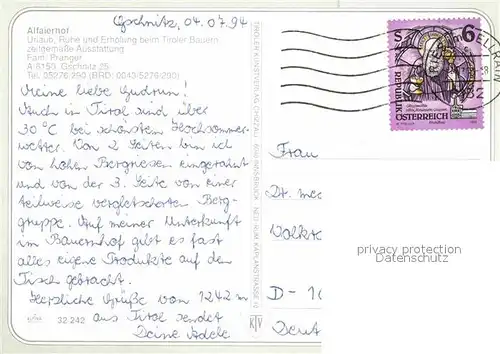 Gschnitz, 04.07.94
Alfaierhof
Urlaub, Ruhe und Erholung beim Tiroler Bauern
zeitgemäße Ausstattung
Fam. Pranger
A-6150 Gschnitz 25
Tel. 05276-290 (BRD: 0043-5276-290)
Meine liebe Gudrun!
Auch in Tirol sind über
30°C bei schönstem Hochsommer-
wetter. Von 2 Seiten bin ich
von hohen Bergriesen eingerahmt
und von der 3. Seite von einer
teilweise vergletscherten Berg-
gruppe. Auf meiner Unterkunft
im Bauernhof gibt es fast
alles eigene Produkte auf den
Tisch gebracht.
Herzliche Grüße von 1242 m
aus Tirol sendet
Deine Adele
32.242
KTV
TIROLER KUNSTVERLAG CHIZZALI
INNSBRUCK
S 6
REPUBLIK
ÖSTERREICH
Frau
Dr. med
D-10
privacy protection
DatenSchutz